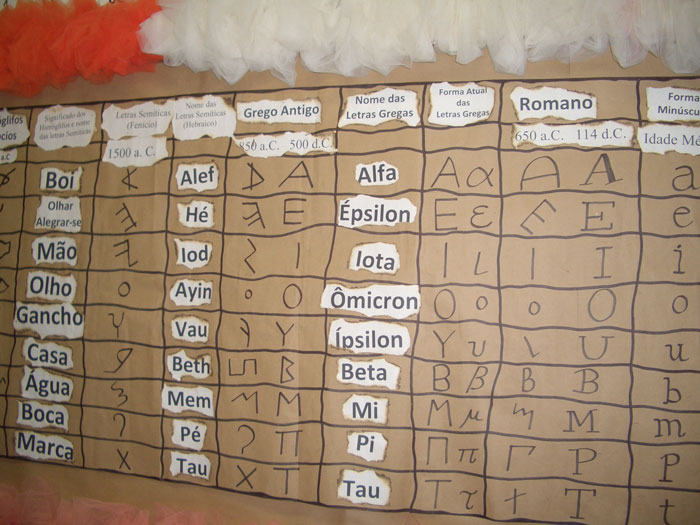 Significado dos
Hieróglifos e nome
das letras Semíticas
Letras Semíticas
(Fenício)
Nome das
Letras Semíticas
(Hebraico)
Grego Antigo
Nome das
Letras Gregas
Forma Atual
das
Letras Gregas
Romano
Forma
1500 a.C.
850 a.C. 500 d.C.
650 a.C. 114 d.C.
Idade
Boi Alef A Alfa Α α A a
Olhar
Alegrar-se
Hé E Épsilon Ε ε E e
Mão Iod I Iota Ι ι I I i
Olho o Ayin o O Ômicron Ο ο o O o
Gancho Vau Y Ípsilon Υ υ U u
Casa Beth B Beta Β β B B b
Água Mem M Mi Μ μ M m
Boca Pé Π Pi Π π P P
Marca X Tau X T Tau Τ τ T t